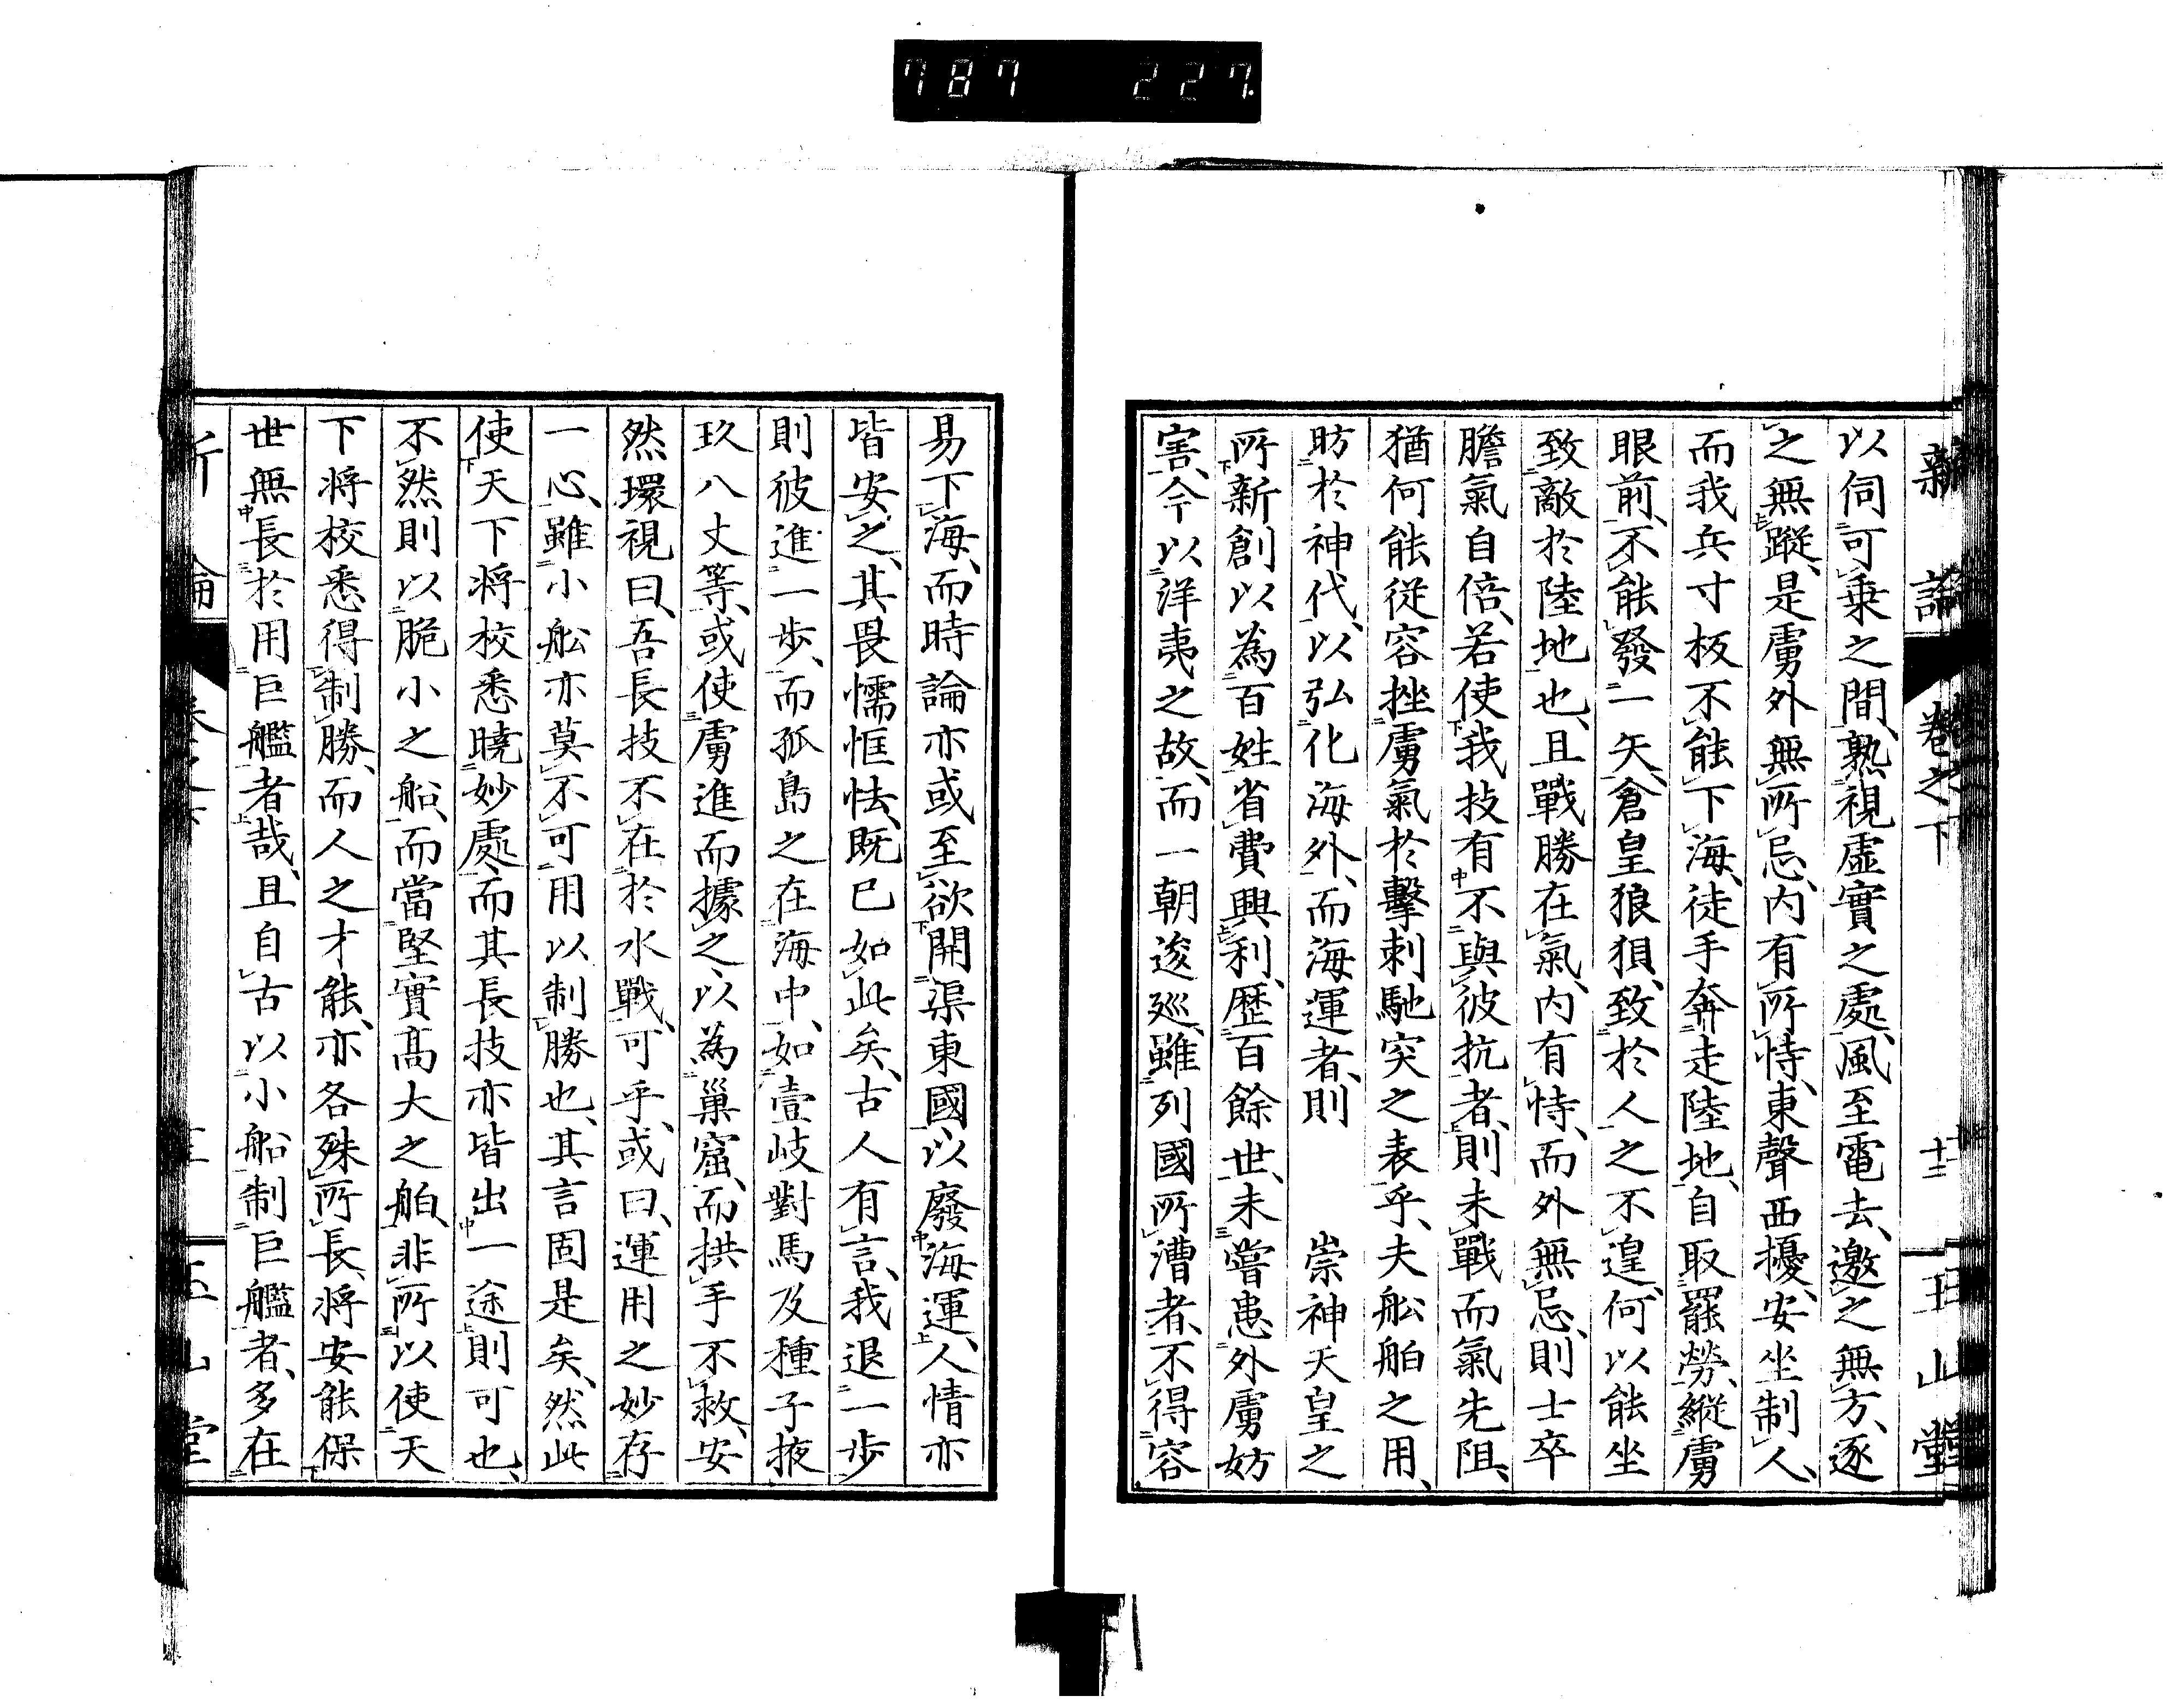 787 227
新論 卷之下 十二 玉山堂
以伺可乘之間、熟視虛實之處、風至電去、邀之無方、逐
之無蹤、是虜外無所忌、內有所恃、東聲西擾、安坐制人、
而我兵寸板不能下海、徒手奔走陸地、自取罷勞、縱虜
眼前、不能發一矢、倉皇狼狽、致於人之不遑、何以能坐
致敵於陸地也、且戰勝在氣、內有恃、而外無忌、則士卒
膽氣自倍、若使我技有不與彼抗者、則未戰而氣先阻、
猶何能從容挫虜氣於擊刺馳突之表乎、夫舩舶之用、
昉於神代、以弘化海外、而海運者、則 崇神天皇之
所新創以為百姓省費興利、歷百餘世、未嘗患外虜妨
害、今以洋夷之故、而一朝逡巡、雖列國所漕者、不得容
易下海、而時論亦或至欲開渠東國以廢海運、人情亦
皆安之、其畏懦恇怯、既已如此矣、古人有言、我退一步
則彼進一步、而孤島之在海中、如壹岐對馬及種子掖
玖八丈等、或使虜進而據之、以為巢窟、而拱手不救、安
然環視曰、吾長技不在於水戰、可乎、或曰、運用之妙存
一心、雖小舩亦莫不可用以制勝也、其言固是矣、然此
使天下將校悉曉妙處、而其長技亦皆出一途則可也、
不然則以脆小之船、而當堅實高大之舶、非所以使天
下將校悉得制勝、而人之才能、亦各殊所長、將安能保
世無長於用巨艦者哉、且自古以小船制巨艦者、多在